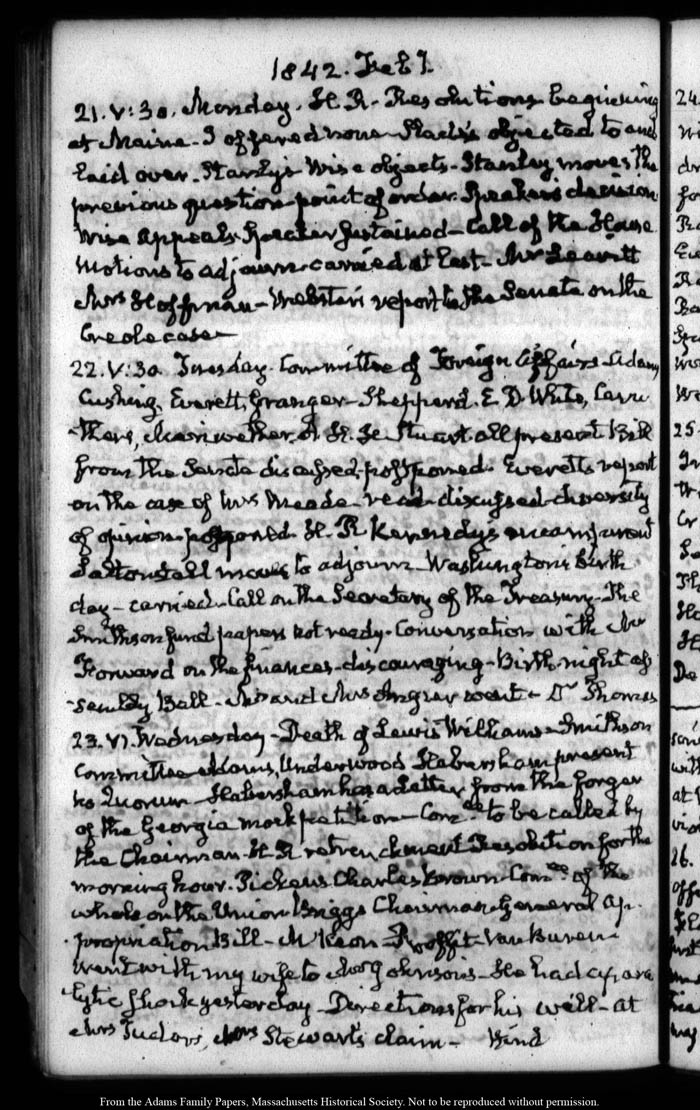 1842. Feb
21. V:30. Monday. H. R. Resolutions beginning
at Maine. I offered none Slade's objected to and
laid over. Stanly's Wise objects - Stanley moves the
previous question point of order. Speakers decision
Wise appeals Speaker Sustained - Call of the House
Motions to adjourn carried at last - Mr Leavitt
Mrs Hoffman - Webster's report to the Senate on the
Creole case
22. V:30 Tuesday. Committee of Foreign Affairs Adams
Cushing, Everett, Granger - Shepperd. E. D. White, Caru
thers, Meriwether. A. H. H. Stuart all present Bill
from the Senate discussed, postponed. Everett's report
on the case of Mrs Meade - read - discussed - diversity
of opinion - postponed. H. R. Kennedy's
Saltonstall moves to adjourn - Washington's Birth
day - carried - Call on the Secretary of the Treasury - The
Smithson fund papers not ready - Conversation with Mr
Forward on the finances - discouraging - Birth-night as
sembly Ball - and Mrs went - Dr Thomas
23. VI. Wednesday - Death of Lewis Williams - Smithson
Committee Adams, Underwood Habersham present
no Quorum - Habersham has a letter from the forger
of the Georgia mock petition - Comee to be called by
the Chairman - H. R. retrenchment Resolution for the
morning hour. Pickens Charles Brown Comee of the
whole on the Union Briggs Chairman General Ap-
propriation Bill - McKeon - Proffit - Van Buren
Went with my wife to Mrs Johnson's - He had a para
lytic shock yesterday - Directions for his will - at
Mrs Tudor's, Mrs Stewart's claim - Wind
From the Adams Family Papers, Massachusetts Historical Society. Not to be reproduced without permission.